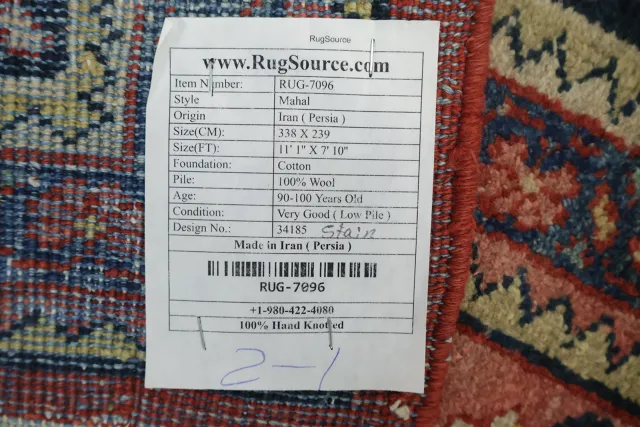 RugSource
www.RugSource.com
Item Number: RUG-7096
Style Mahal
Origin Iran ( Persia )
Size(CM): 338 X 239
Size(FT): 11' 1" X 7' 10"
Foundation: Cotton
Pile: 100% Wool
Age: 90-100 Years Old
Condition: Very Good ( Low Pile )
Design No.: 34185 Stain
Made in Iran ( Persia )
RUG-7096
+1-980-422-4080
100% Hand Knotted
2-1